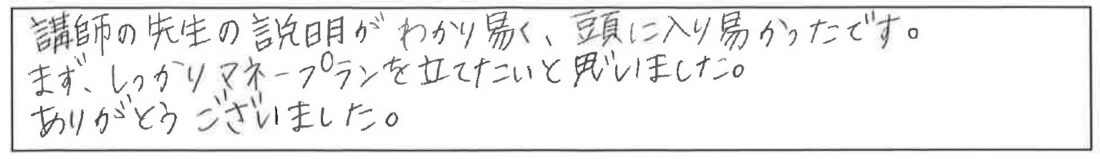 講師の先生の説明がわかり易く、頭に入り易かったです。
まず、しっかりマネープランを立てたいと思いました。
ありがとうございました。